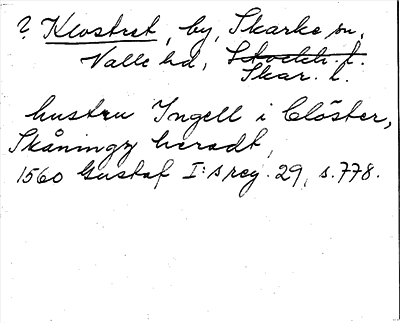 ? Klostret, by, Skarke sn,
Valle hd, Stockh. l.
Skar. l.
hustru Ingell i Clöster,
Skåningz heradt,
1560 Gustaf I:s reg. 29, s. 778.